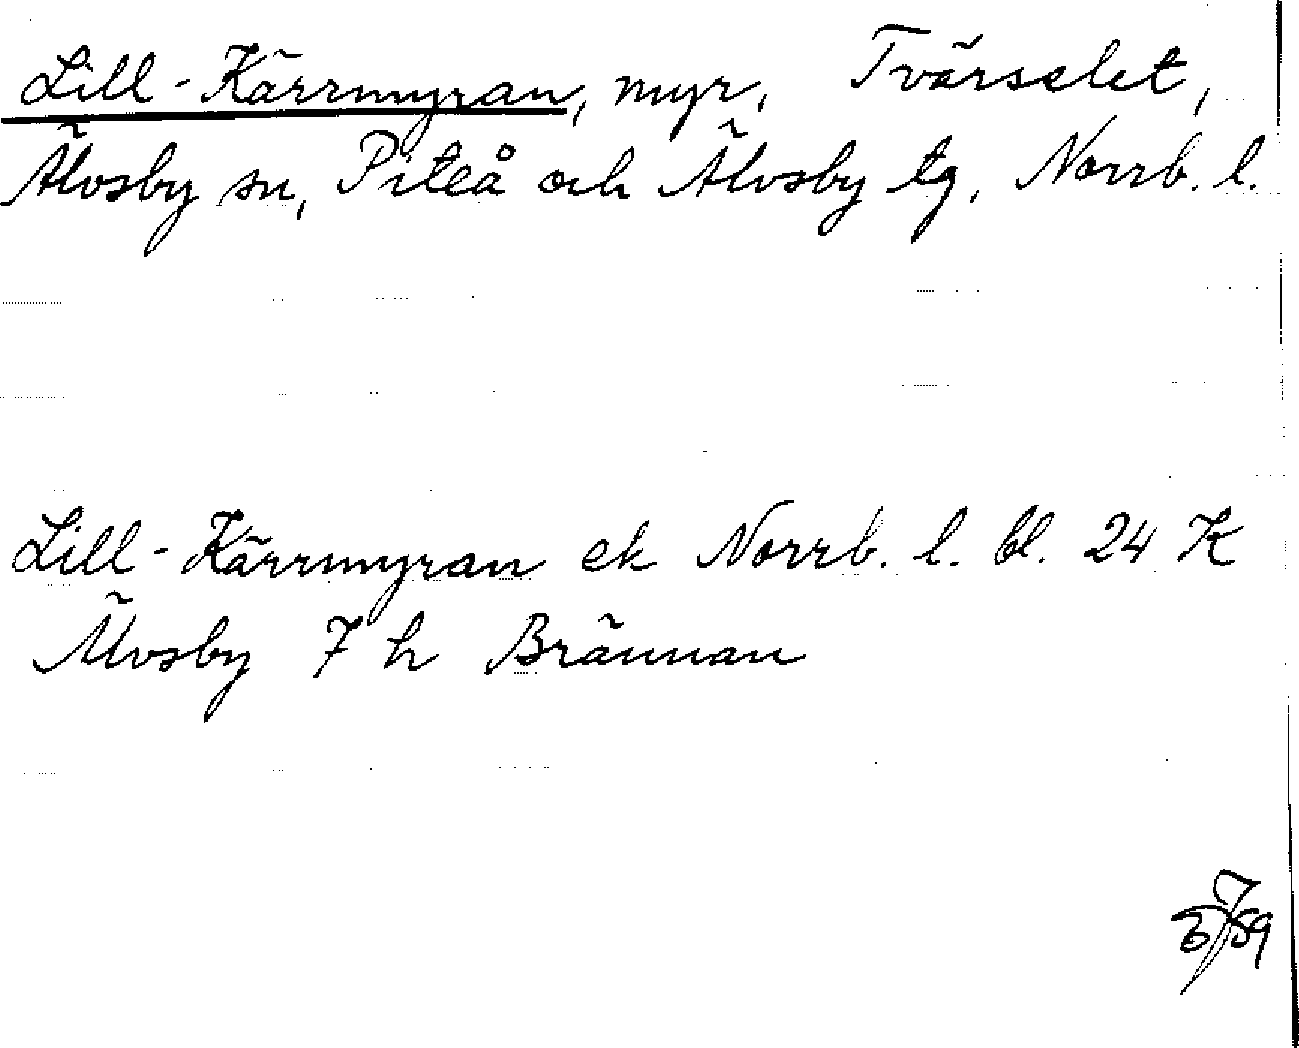 Lill-Kärrmyran, myr, Tvärselet,
Älvsby sn, Piteå och Älvsby tg, Norrb. l.
Lill-Kärrmyran ek Norrb. l. bl. 24 K
Älvsby 7 h Brännan